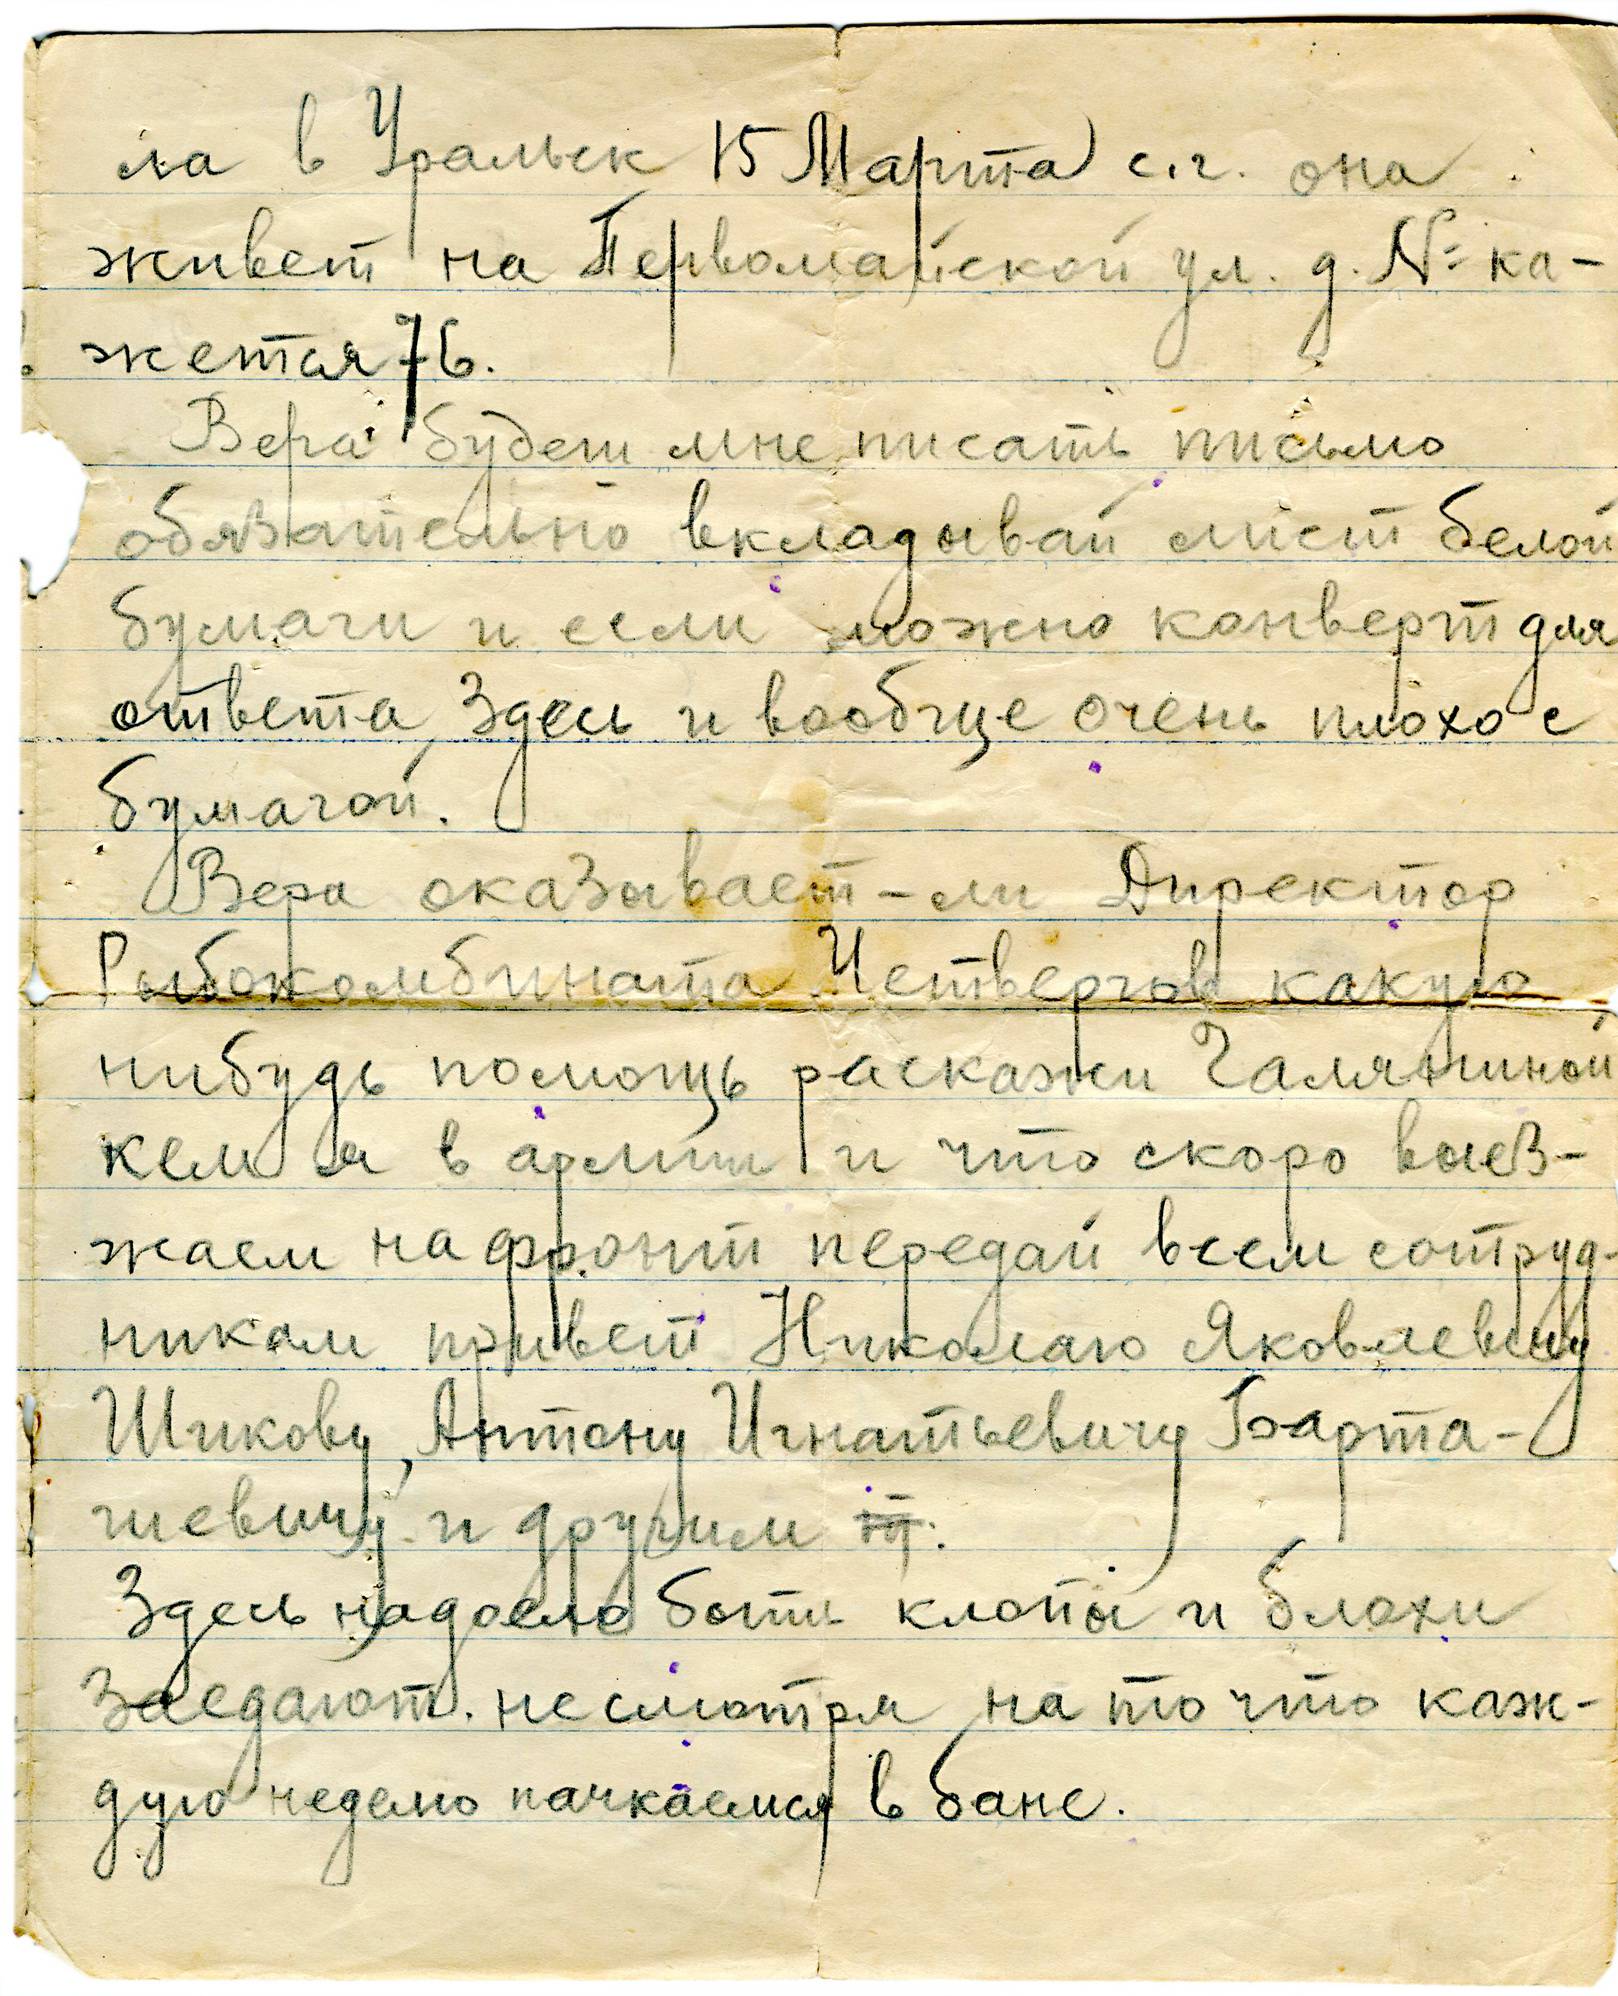 ла в Уральск 15 Марта с.г. она
живет на Первомайской ул. д. № ка-
жется 76.
Вера будеш мне писать письмо
обязательно вкладывай лист белой
бумаги и если можно конверт для
ответа, Здесь и вообще очень плохо с
бумагой.
Вера оказывает-ли Директор
Рыбокомбината Четвергов какую
нибудь помощь раскажи Галяниной
кем я в армии и что скоро выез-
жаем на фронт передай всем сотруд-
никам привет Николаю Яковлевичу
Шикову, Антону Игнатьевичу Барта-
шевичу и другим.
Здесь надоело быть клопы и блохи
заедают. несмотря на то что каж-
дую неделю пачкаемся в бане.